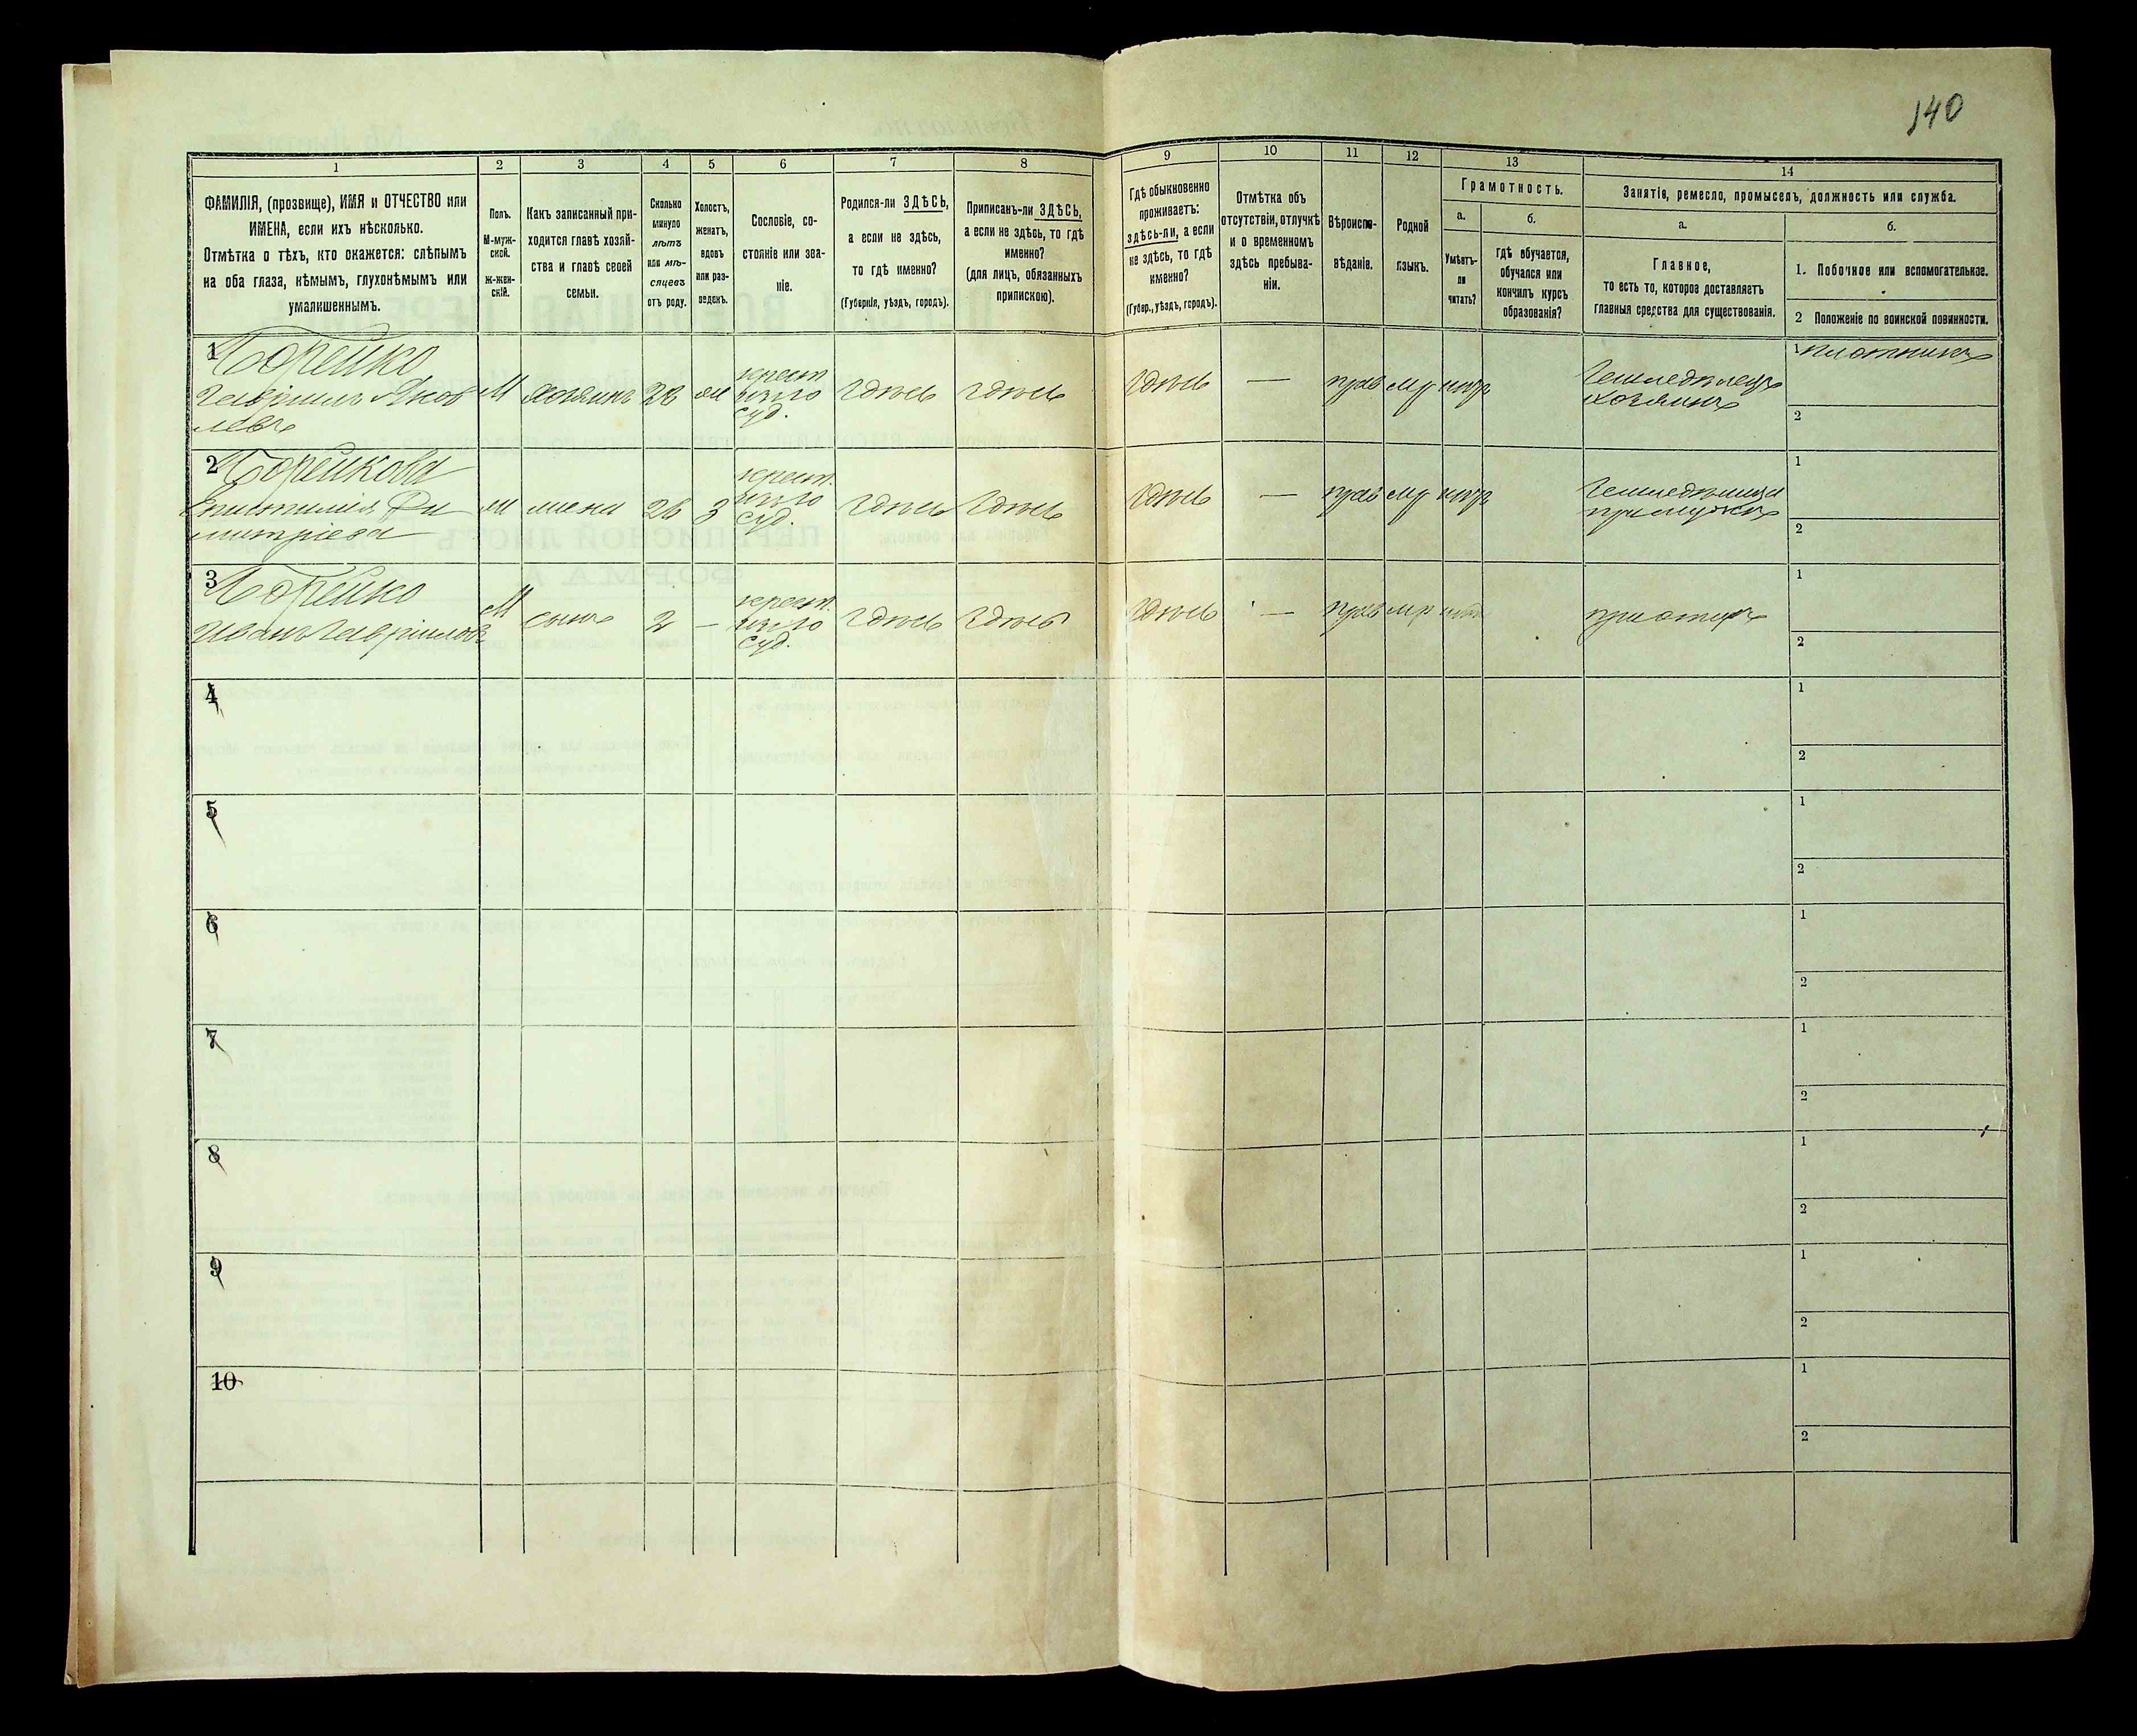 140
1
2
3
4
5
6
7
8
9
10
11
12
13
14
ФАМИЛІЯ, (прозвище), ИМЯ и ОТЧЕСТВО или
ИМЕНА, если ихъ нѣсколько.
Отмѣтка о тѣхъ, кто окажется: слѣпымъ
на оба глаза, нѣмымъ, глухонѣмымъ или
умалишеннымъ.
Полъ.
М-муж-
ской.
Ж-жен-
скій.
Какъ записанный при-
ходится главѣ хозяй-
ства и главѣ своей
семьи.
Сколько
минуло
лѣтъ
или мѣ-
сяцевъ
отъ роду.
Холостъ,
женатъ,
вдовъ
или раз-
веденъ.
Сословіе, со-
стояніе или зва-
ніе.
Родился-ли ЗДѢСЬ,
а если не здѣсь,
то гдѣ именно?
(Губернія, уѣздъ, городъ).
Приписанъ-ли ЗДѢСЬ,
а если не здѣсь, то гдѣ
именно?
(для лицъ, обязанныхъ
припискою).
Гдѣ обыкновенно
проживаетъ:
здѣсь-ли, а если
не здѣсь, то гдѣ
именно?
(Губер., уѣздъ, городъ).
Отмѣтка объ
отсутствіи, отлучкѣ
и о временномъ
здѣсь пребыва-
ніи.
Вѣроиспо-
вѣданіе.
Родной
языкъ.
Грамотность.
а.
б.
Умѣетъ-
ли
читать?
Гдѣ обучается,
обучался или
кончилъ курсъ
образованія?
Занятія, ремесло, промыселъ, должность или служба.
а.
б.
Главное,
то есть то, которое доставляетъ
главныя средства для существованія.
1. Побочное или вспомогательное.
2 Положеніе по воинской повинности.
1
Гавріилъ Яков
левъ
М
хозяинъ
28
крест
суд.
здѣсь
здѣсь
здѣсь
—
прав
Земледѣлецъ
хозяинъ
1 плотникъ
2
2
Ди
митріева
жена
3
крест.
суд.
здѣсь
здѣсь
здѣсь
—
прав
при мужѣ
1
2
3
Иванъ Гавріиловъ
М
сынъ
2
—
крест.
суд.
здѣсь
здѣсь
здѣсь
—
прав
при отцѣ
1
2
4
1
2
5
1
2
6
1
2
7
1
2
8
1
2
9
1
2
10
1
2